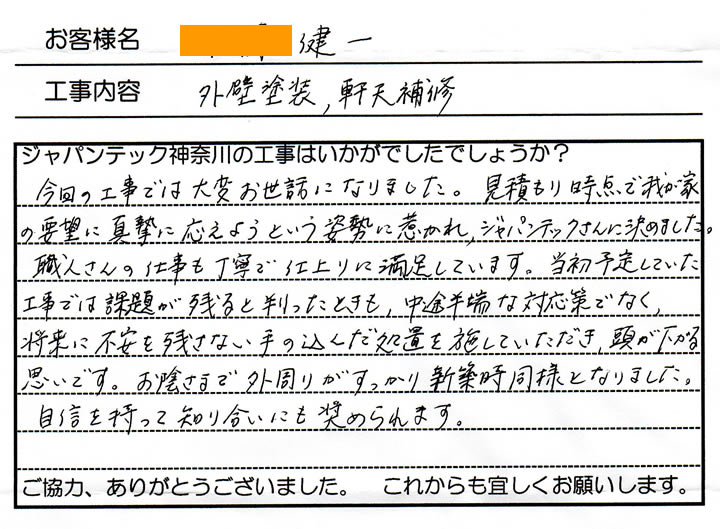 お客様名 健一
工事内容 外壁塗装,軒天補修
ジャパンテック神奈川の工事はいかがでしたでしょうか?
今回の工事では大変お世話になりました。見積もり時点で我が家
の要望に真摯に応えようという姿勢に惹かれ,ジャパンテックさんに決めました。
職人さんの仕事も丁寧で仕上りに満足しています。当初予定していた
工事では課題が残ると判ったときも,中途半端な対応策でなく,
将来に不安を残さない手の込んだ処置を施していただき,頭が下がる
思いです。お陰さまで外周りがすっかり新築時同様となりました。
自信を持って知り合いにも奨められます。
ご協力、ありがとうございました。 これからも宜しくお願いします。